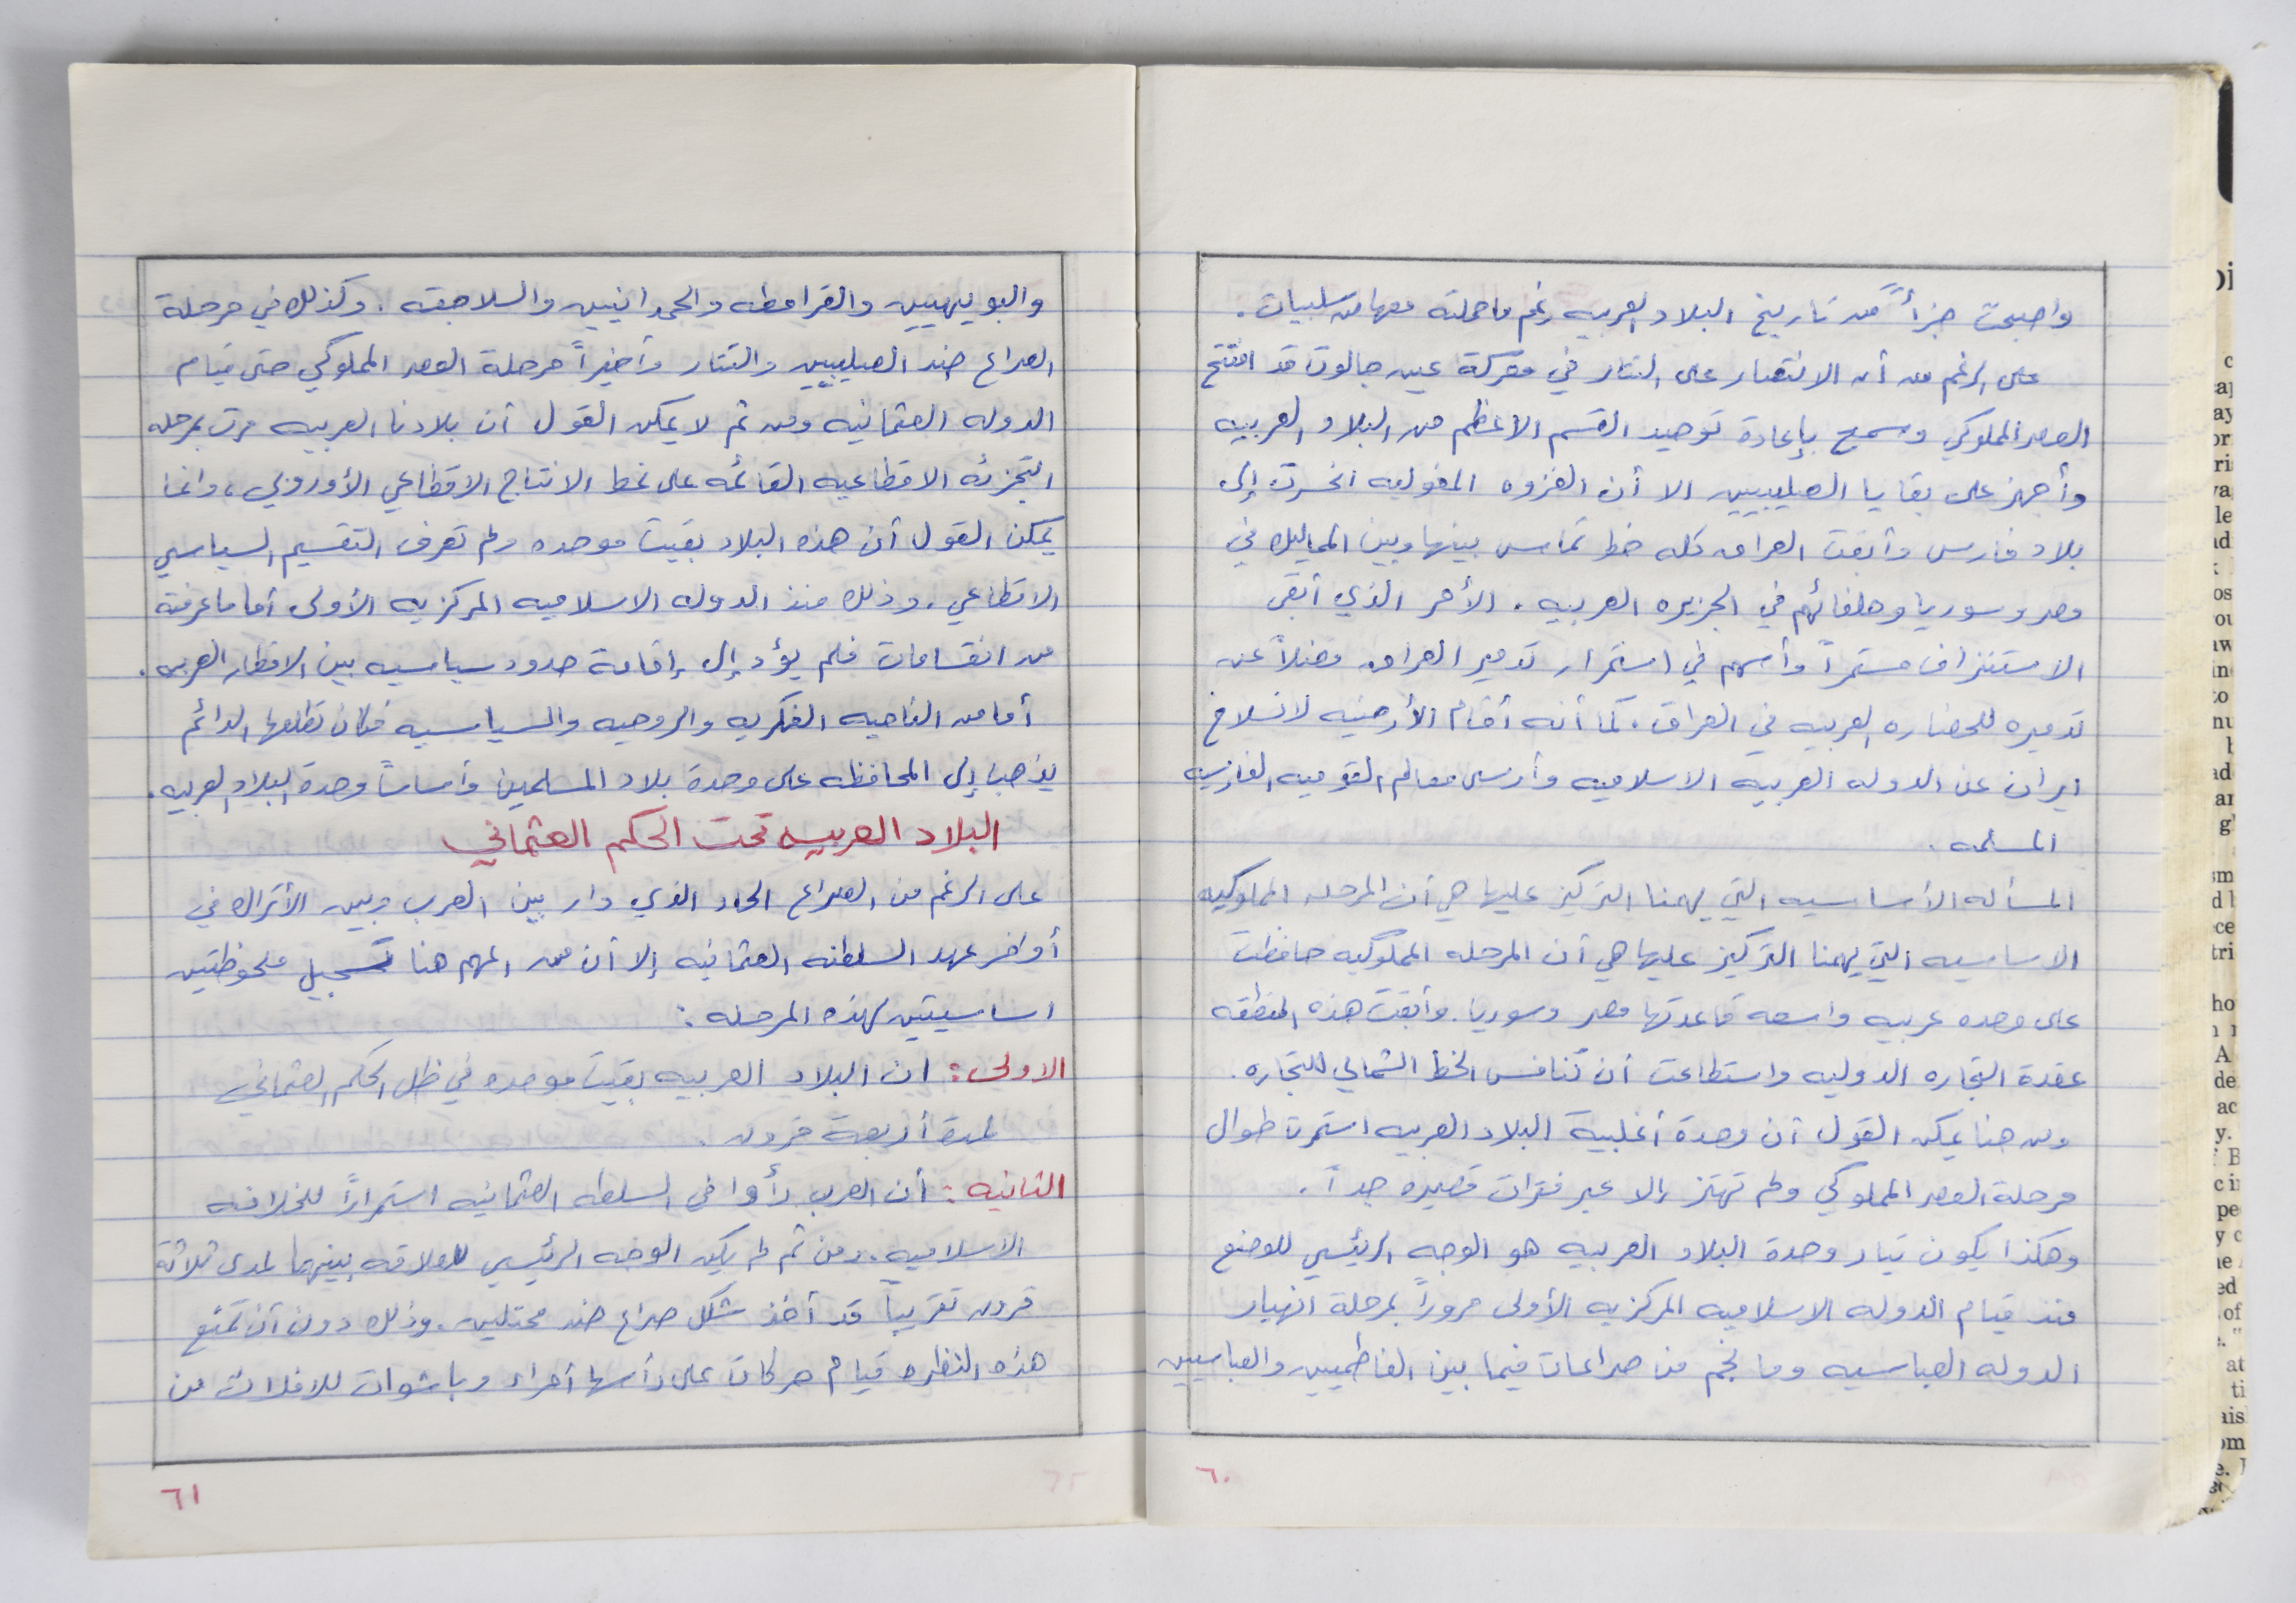 واصبحت جزأً من تاريخ البلاد العربيه رغم ما حملته معها من سلبيات .
على الرغم من أن الانتصار على التتار في معركة عين جالوت قد افتتح
العصر المملوكي وسمح بإعادة توحيد القسم الاعظم من البلاد العربيه
وأجهز على بقايا الصليبيين الا أن الغزوه المغوليه انحسرت إلى
بلاد فارس وأبقت العراق كله خط تماس بينها وبين المماليك في
مصر وسوريا وحلفائهم في الجزيره العربيه . الأمر الذي أبقى
الاستنزاف مستمراً وأسهم في استمرار تدمير العراق فضلاً عن
تدميره للحضاره العربيه في العراق . كما أنه أقام الأرضيه لانسلاخ
ايران عن الدوله العربيه الاسلاميه وأرسى معالم القوميه الفارسيه
المسلمه .
المسأله الأساسيه التي يهمنا التركيز عليها هي أن المرحله المملوكيه
الاساسيه التي يهمنا التركيز عليها هي أن المرحله المملوكيه حافظت
على وحده عربيه واسعه قاعدتها مصر وسوريا . وأبقت هذه المنطقه
عقدة التجاره الدوليه واستطاعت أن تنافس الخط الشمالي للتجاره .
ومن هنا يمكن القول أن وحدة أغلبية البلاد العربيه استمرت طوال
مرحلة العصر المملوكي ولم تهتز إلا عبر فترات قصيره جداً .
وهكذا يكون تيار وحدة البلاد العربيه هو الوجه الرئيسي للوضع
منذ قيام الدوله الاسلاميه المركزيه الأولى مروراً بمرحلة انهيار
الدوله العباسيه وما نجم من صراعات فيما بين الفاطميين والعباسيين
٦٠
والبويهيين والقرامطه والحمدانيين والسلاجقه . وكذلك في مرحلة
الصراع ضد الصليبيين والتتار وأخيراً مرحلة العصر المملوكي حتى قيام
الدوله العثمانيه ومن ثم لا يمكن القول أن بلادنا العربيه مرت بمرحله
التجزئه الاقطاعيه القائمه على نمط الانتاج الاقطاعي الأوروبي ، وانما
يمكن القول أن هذه البلاد بقيت موحده ولم تعرف التقسيم السياسي
الاقطاعي . وذلك منذ الدوله الاسلاميه المركزيه الأولى أما ما عرفته
من انقسامات فلم يؤد إلى إقامة حدود سياسيه بين الاقطار العربيه .
أما من الناحيه الفكريه والروحيه والسياسيه فكان تطلعها الدائم
يذهب إلى المحافظه على وحدة بلاد المسلمين وأساساً وحدة البلاد العربيه .
البلاد العربيه تحت الحكم العثماني
على الرغم من الصراع الحاد الذي دار بين العرب وبين الأتراك في
أواخر عهد السلطنه العثمانيه إلا أن من المهم هنا تسجيل ملحوظتين
اساسيتين لهذه المرحله :
الاولى : ان البلاد العربيه بقيت موحده في ظل الحكم العثماني
لمدة أربعة قرون .
الثانيه : أن العرب رأوا في السلطه العثمانيه استمراراً للخلافه
الاسلاميه . ومن ثم لم يكن الوجه الرئيسي للعلاقه بينهما لمدى ثلاثة
قرون تقريباً قد أخذ شكل صراع ضد محتلين . وذلك دون أن تمنع
هذه النظره قيام حركات على رأسها أمراء وباشوات للافلات من
٦١